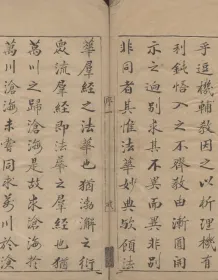 乎逗機輔教因之以析理機有
利鈍悟入之不齊教由漸圓開
示之過別求其不異而異非別
非同者其惟法華妙典歟傾法
華羣經之法華也猶渤澥之衍
衆流羣經即法華之羣經也猶
萬川之歸滄海是故朱滄海於
萬川滄海未嘗同求萬川於滄